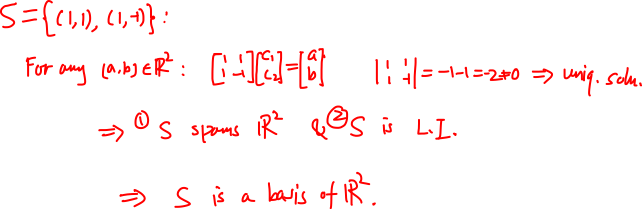 S={(1,1), (1,-1)}:
For any (a,b)∈ℝ²: [1 1; 1 -1][c₁; c₂]=[a; b] |1 1; 1 -1|=-1-1=-2≠0 ⇒ uniq. soln.
⇒ ① S spans ℝ² & ② S is L.I.
⇒ S is a basis of ℝ².